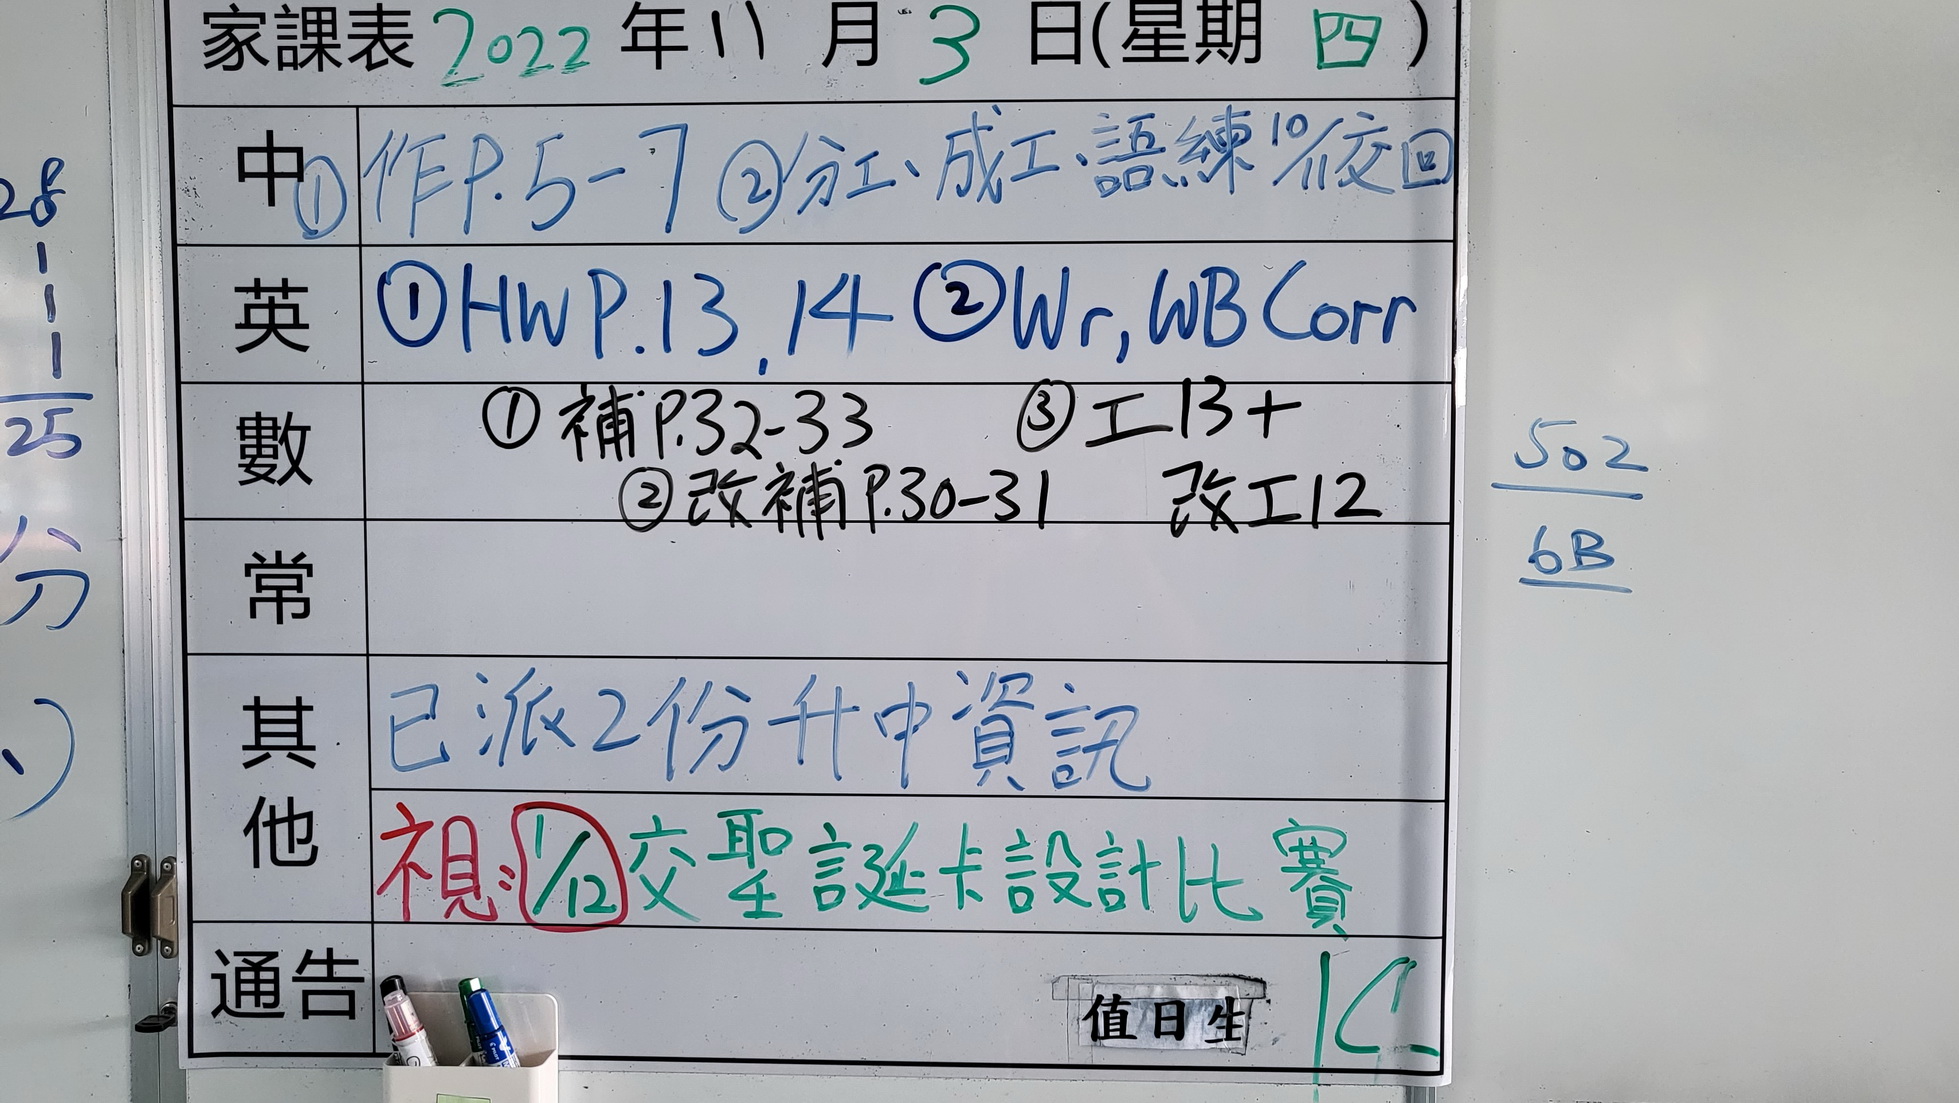 家課表 2022 年 11 月 3 日(星期 四)
中 ① 作P.5-7 ② 分工、成工、語練 10/11交回
英 ① HW P.13, 14 ② Wr, WB Corr
數 ① 補P.32-33 ③ 工13+
② 改補P.30-31 改工12
常
其他 已派2份升中資訊
視: 1/12 交聖誕卡設計比賽
通告
值日生
28
25
分
502
6B